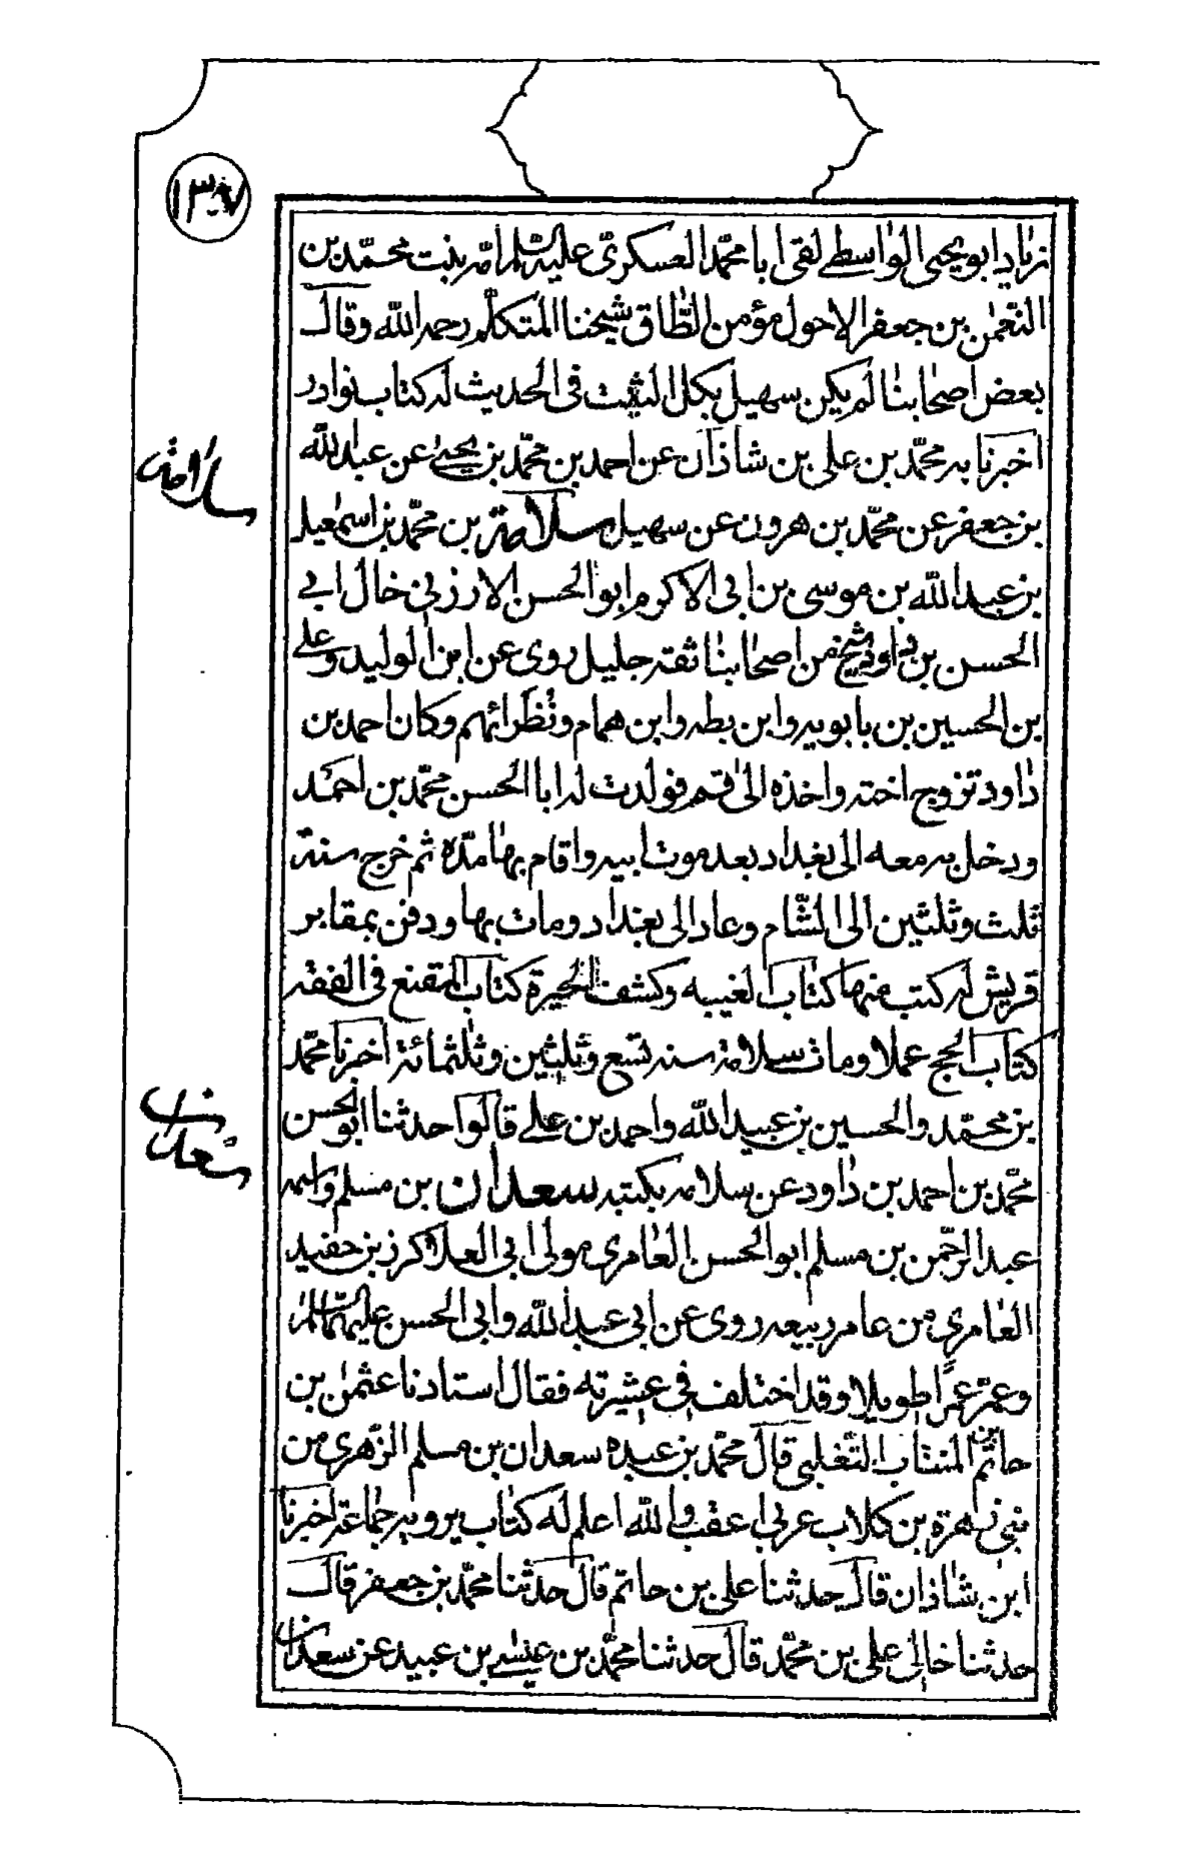 ١٣٧
زياد ابو يحيى الواسطى لقى ابا محمّد العسكرى عليه السلم امّه بنت محمّد بن
النّعمٰن بن جعفر الاحول مؤمن الطّاق شيخنا المتكلّم رحمه اللّه وقال
بعض اصحابنا لم يكن سهيل بكل الثبت فى الحديث له كتاب نوادر
اخبرنا به محمّد بن على بن شاذان عن احمد بن محمّد بن يحيى عن عبد اللّه
بن جعفر عن محمّد بن هرون عن سهيل سلامة بن محمّد بن اسمٰعيل
سلامة
بن عبد اللّه بن موسى بن ابى الاكرم ابو الحسن الارزنى خال ابى
الحسن بن داود شيخ من اصحابنا ثقة جليل روى عن ابن الوليد وعلى
بن الحسين بن بابويه وابن بطه وابن همام ونظرائهم وكان احمد بن
داود تزوج اخته واخذه الى قم فولدت له ابا الحسن محمّد بن احمد
ودخل به معه الى بغداد بعد موت ابيه واقام بها مدّة ثم خرج سنة
ثلث وثلثين الى الشّام وعاد الى بغداد ومات بها ودفن بمقابر
قريش له كتب منها كتاب الغيبه وكشف الحيرة كتاب المقنع فى الفقه
كتاب الحج عملا ومات سلامة سنه تسع وثلثين وثلثمائة اخبرنا محمّد
بن محمّد والحسين بن عبيد اللّه واحمد بن على قالوا حدثنا ابو الحسن
محمّد بن احمد بن داود عن سلامه بكتبه سعدان بن مسلم واسمه
سعدان
عبد الرحمٰن بن مسلم ابو الحسن العامرى مولى ابى العلا كرز بن حفيد
العامرى من عامر ربيعه روى عن ابى عبد اللّه وابى الحسن عليهما السلم
وعمّر عمرًا طويلا وقد اختلف فى عشيرته فقال استادنا عثمٰن بن
حاتم بن المنتاب التّغلبى قال محمّد بن عبده سعدان بن مسلم الزّهرى من
بنى زهرة بن كلاب عربى اعقب واللّه اعلم له كتاب يرويه جماعة اخبرنا
ابن شاذان قال حدثنا على بن حاتم قال حدثنا محمّد بن جعفر قال
حدثنا خالى على بن محمّد قال حدثنا محمّد بن عيسى بن عبيد عن سعدان